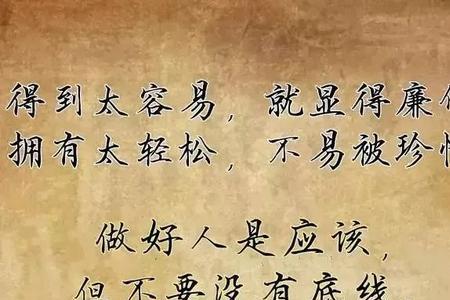 得到太容易，就显得廉
拥有太轻松，不易被珍惜
做好人是应该，
但不要没有底线